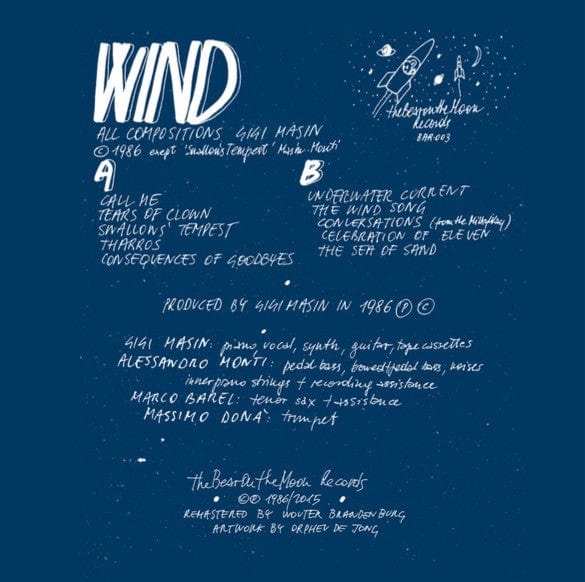 WIND
theBearontheMoon
Records
BAR003
ALL COMPOSITIONS GIGI MASIN
© 1986 exept 'Swallows'Tempest' Masin-Monti
A
CALL ME
TEARS OF CLOWN
SWALLOWS' TEMPEST
THARROS
CONSEQUENCES OF GOODBYES
B
UNDERWATER CURRENT
THE WIND SONG
CONVERSATIONS (from the MilkyWay)
CELEBRATION OF ELEVEN
THE SEA OF SAND
PRODUCED BY GIGI MASIN IN 1986 Ⓟ ©
GIGI MASIN: piano, vocal, synth, guitar, tape cassettes
ALESSANDRO MONTI: pedal bass, bowed/pedal bass, noises
inner piano strings + recording assistance
MARCO BAREL: tenor sax + assistance
MASSIMO DONÁ: trumpet
theBearOntheMoon Records
©Ⓟ 1986/2015
REMASTERED BY WOUTER BRANDENBURG
ARTWORK BY ORPHEU DE JONG